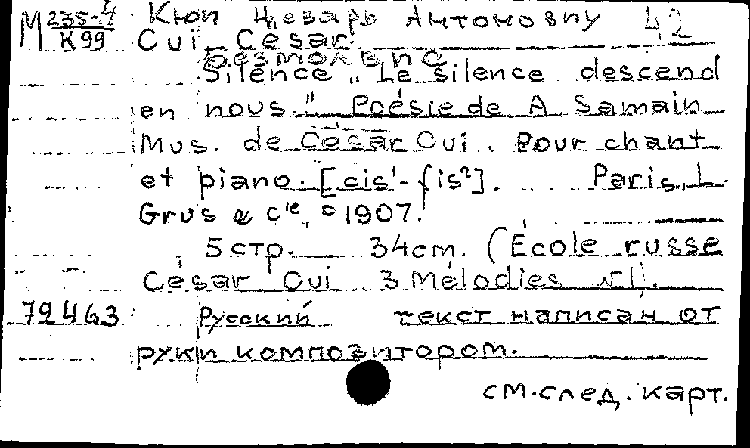 М 235-4 Кюи Цезарь Антонович 42
К 99 Cui, César
Безмолвно
Silence „Le silence descend
en nous." Poésie de A Samain
Mus. de César Cui. Pour chant
et piano. [cis¹-fis²]. Paris, L.
Grus & Cie, © 1907.
5 стр. 34 cm. (École russe
César Cui 3 Mélodies №1).
79463 Русский текст написан от
руки композитором.
см. след. карт.